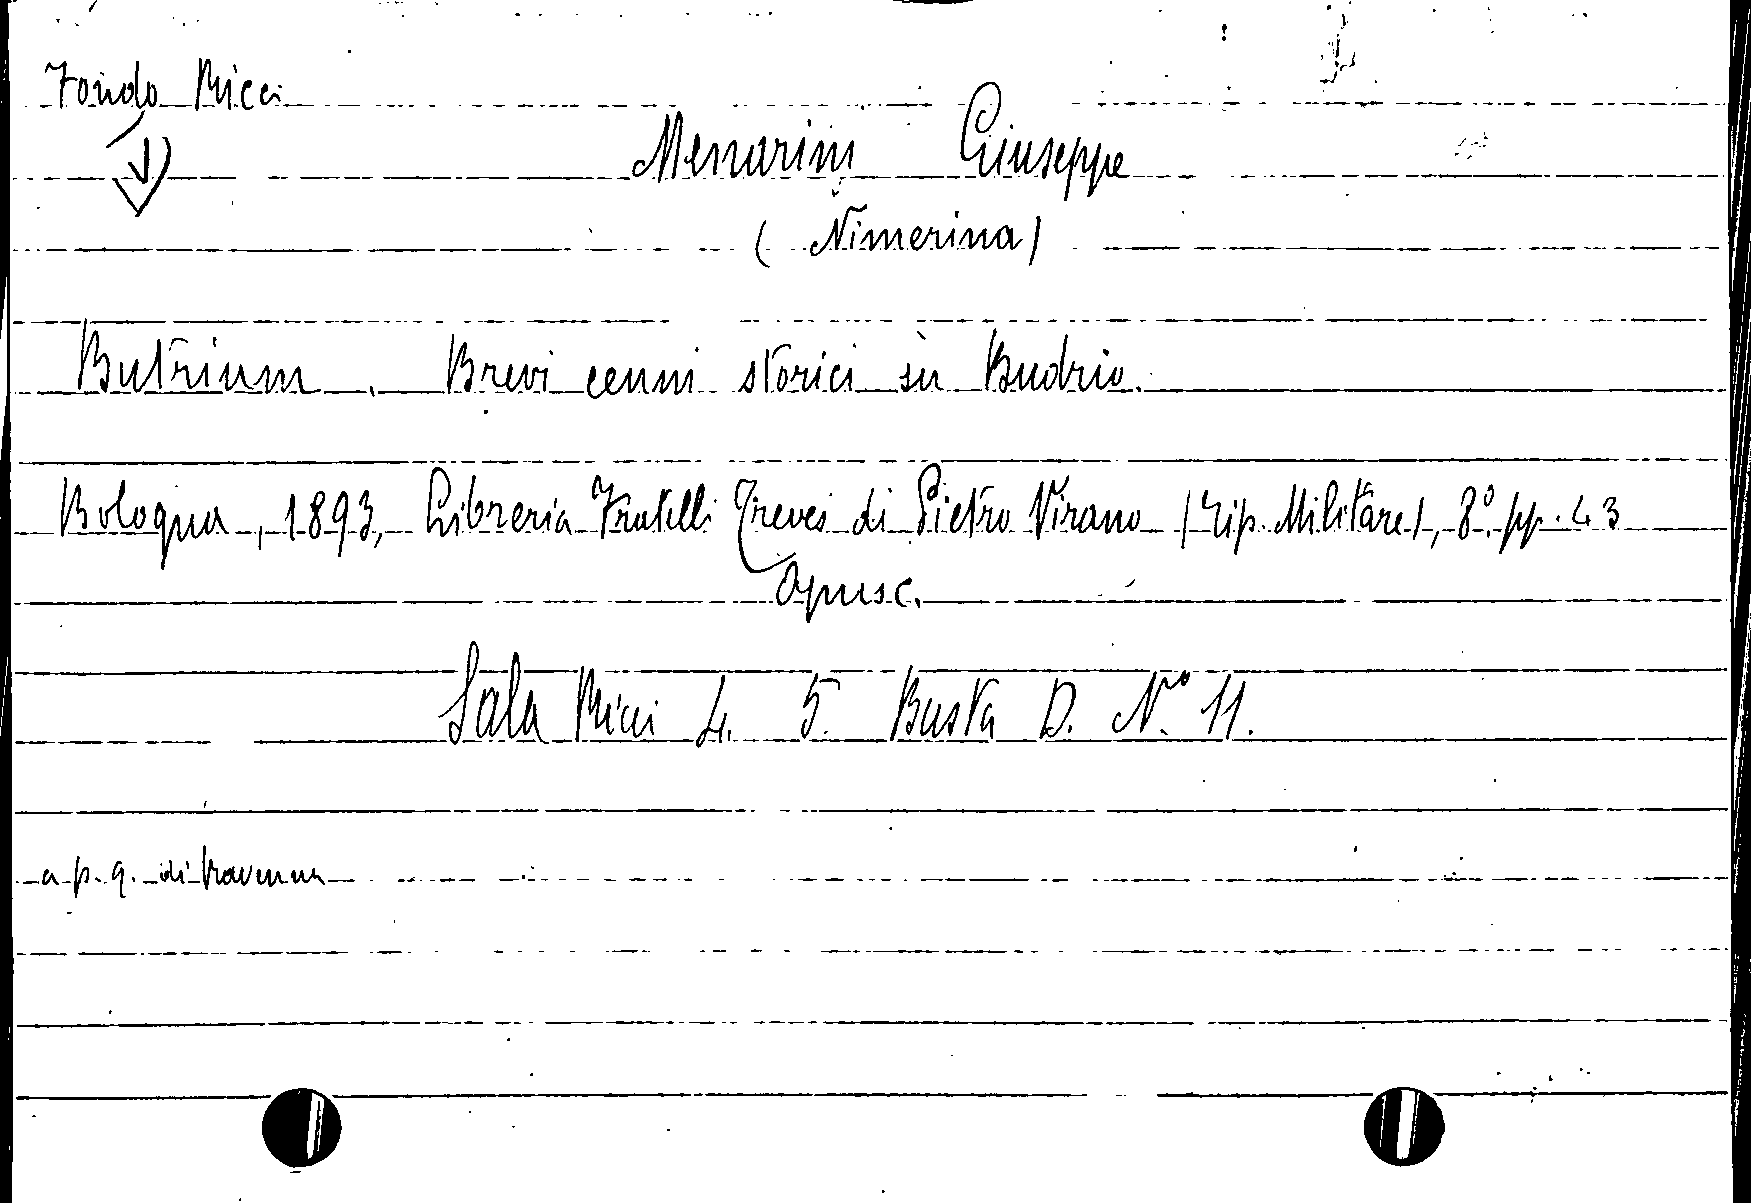 Fondo Ricci
Menarini Giuseppe
( Nimerina )
Butrium. Brevi cenni storici su Budrio.
Bologna, 1893, Libreria Fratelli Treves di Pietro Virano (Tip. Militare), 8°. pp. 43
Opusc.
Sala Ricci 4. 5. Busta D. N.° 11.
a p. 9. di Ravenna